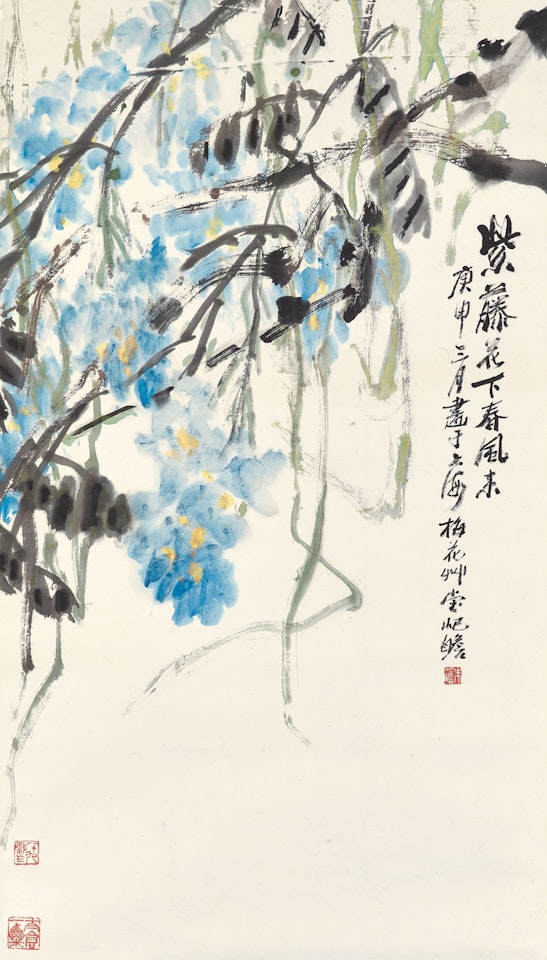 紫藤花下春風来
庚申三月畫于上海梅花草堂屺瞻